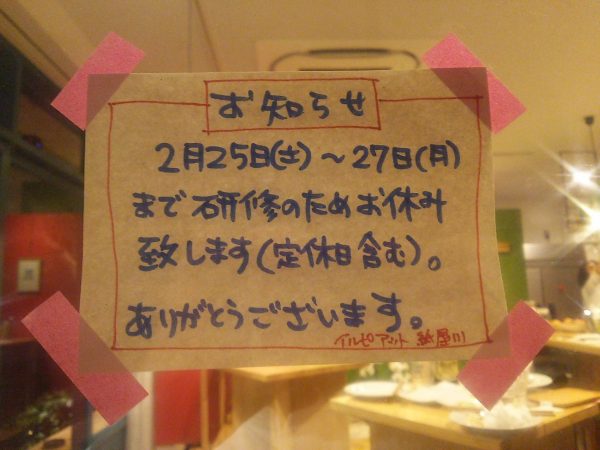 お知らせ
2月25日(土)～27日(月)
まで研修のためお休み
致します(定休日含む)。
ありがとうございます。
イルピアット 紙屋川